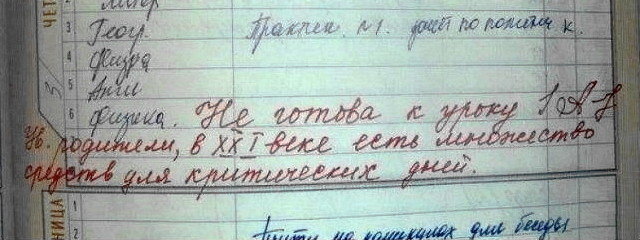 ЧЕТ
3 Геогр. Практич. №1.
4 Физра
5 Англ
6 Физика. Не готова к уроку
Ув. родители, в XXI веке есть множество
средств для критических дней.
НИЦА
1
2
Прийти на каникулах для беседы